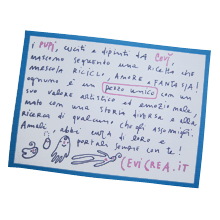 I PUPI, CUCITI E DIPINTI DA CEVÌ,
NASCONO SEGUENDO UNA RICETTA CHE
MESCOLA RICICLO, AMORE E FANTASIA!
OGNUNO È UN PEZZO UNICO CON UN
SUO VALORE ARTISTICO ED EMOZIONALE,
NATO CON UNA STORIA DIVERSA E ALLA
RICERCA DI QUALCUNO CHE GLI ASSOMIGLI.
AMALI, ABBI CURA DI LORO E
PORTALI SEMPRE CON TE!
CEVICREA.IT